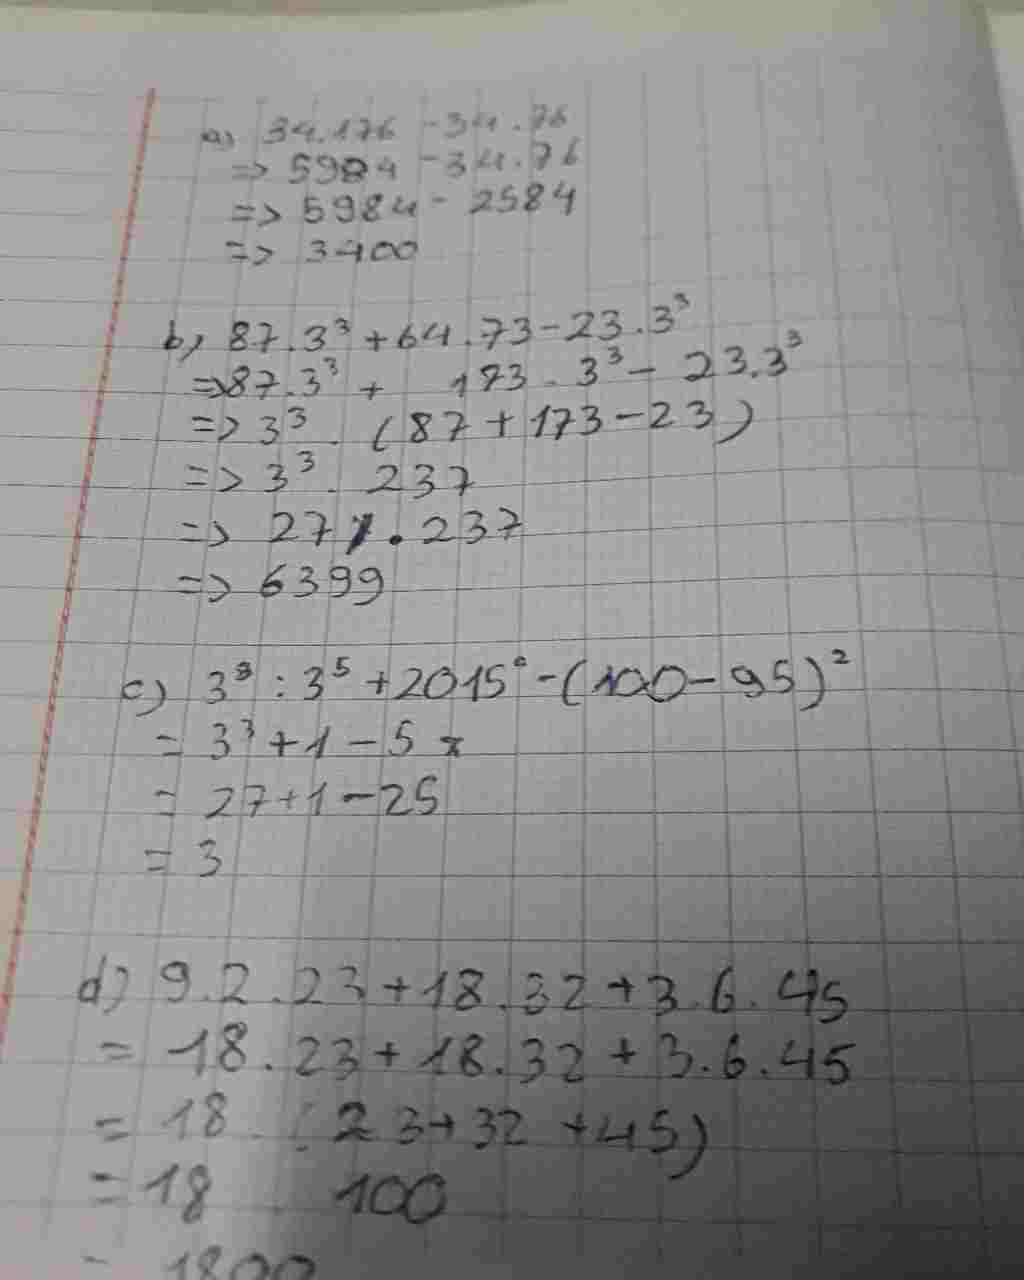 a) 34.176 - 34.76
=> 5984 - 34.76
=> 5984 - 2584
=> 3400
b, 87.3³ + 64.73 - 23.3³
=> 87.3³ + 173.3³ - 23.3³
=> 3³ . (87 + 173 - 23)
=> 3³ . 237
=> 27 . 237
=> 6399
c) 3⁸ : 3⁵ + 2015⁰ - (100 - 95)²
= 3³ + 1 - 5²
= 27 + 1 - 25
= 3
d) 9.2.23 + 18.32 + 3.6.45
= 18.23 + 18.32 + 3.6.45
= 18 . (23 + 32 + 45)
= 18 100
= 1800